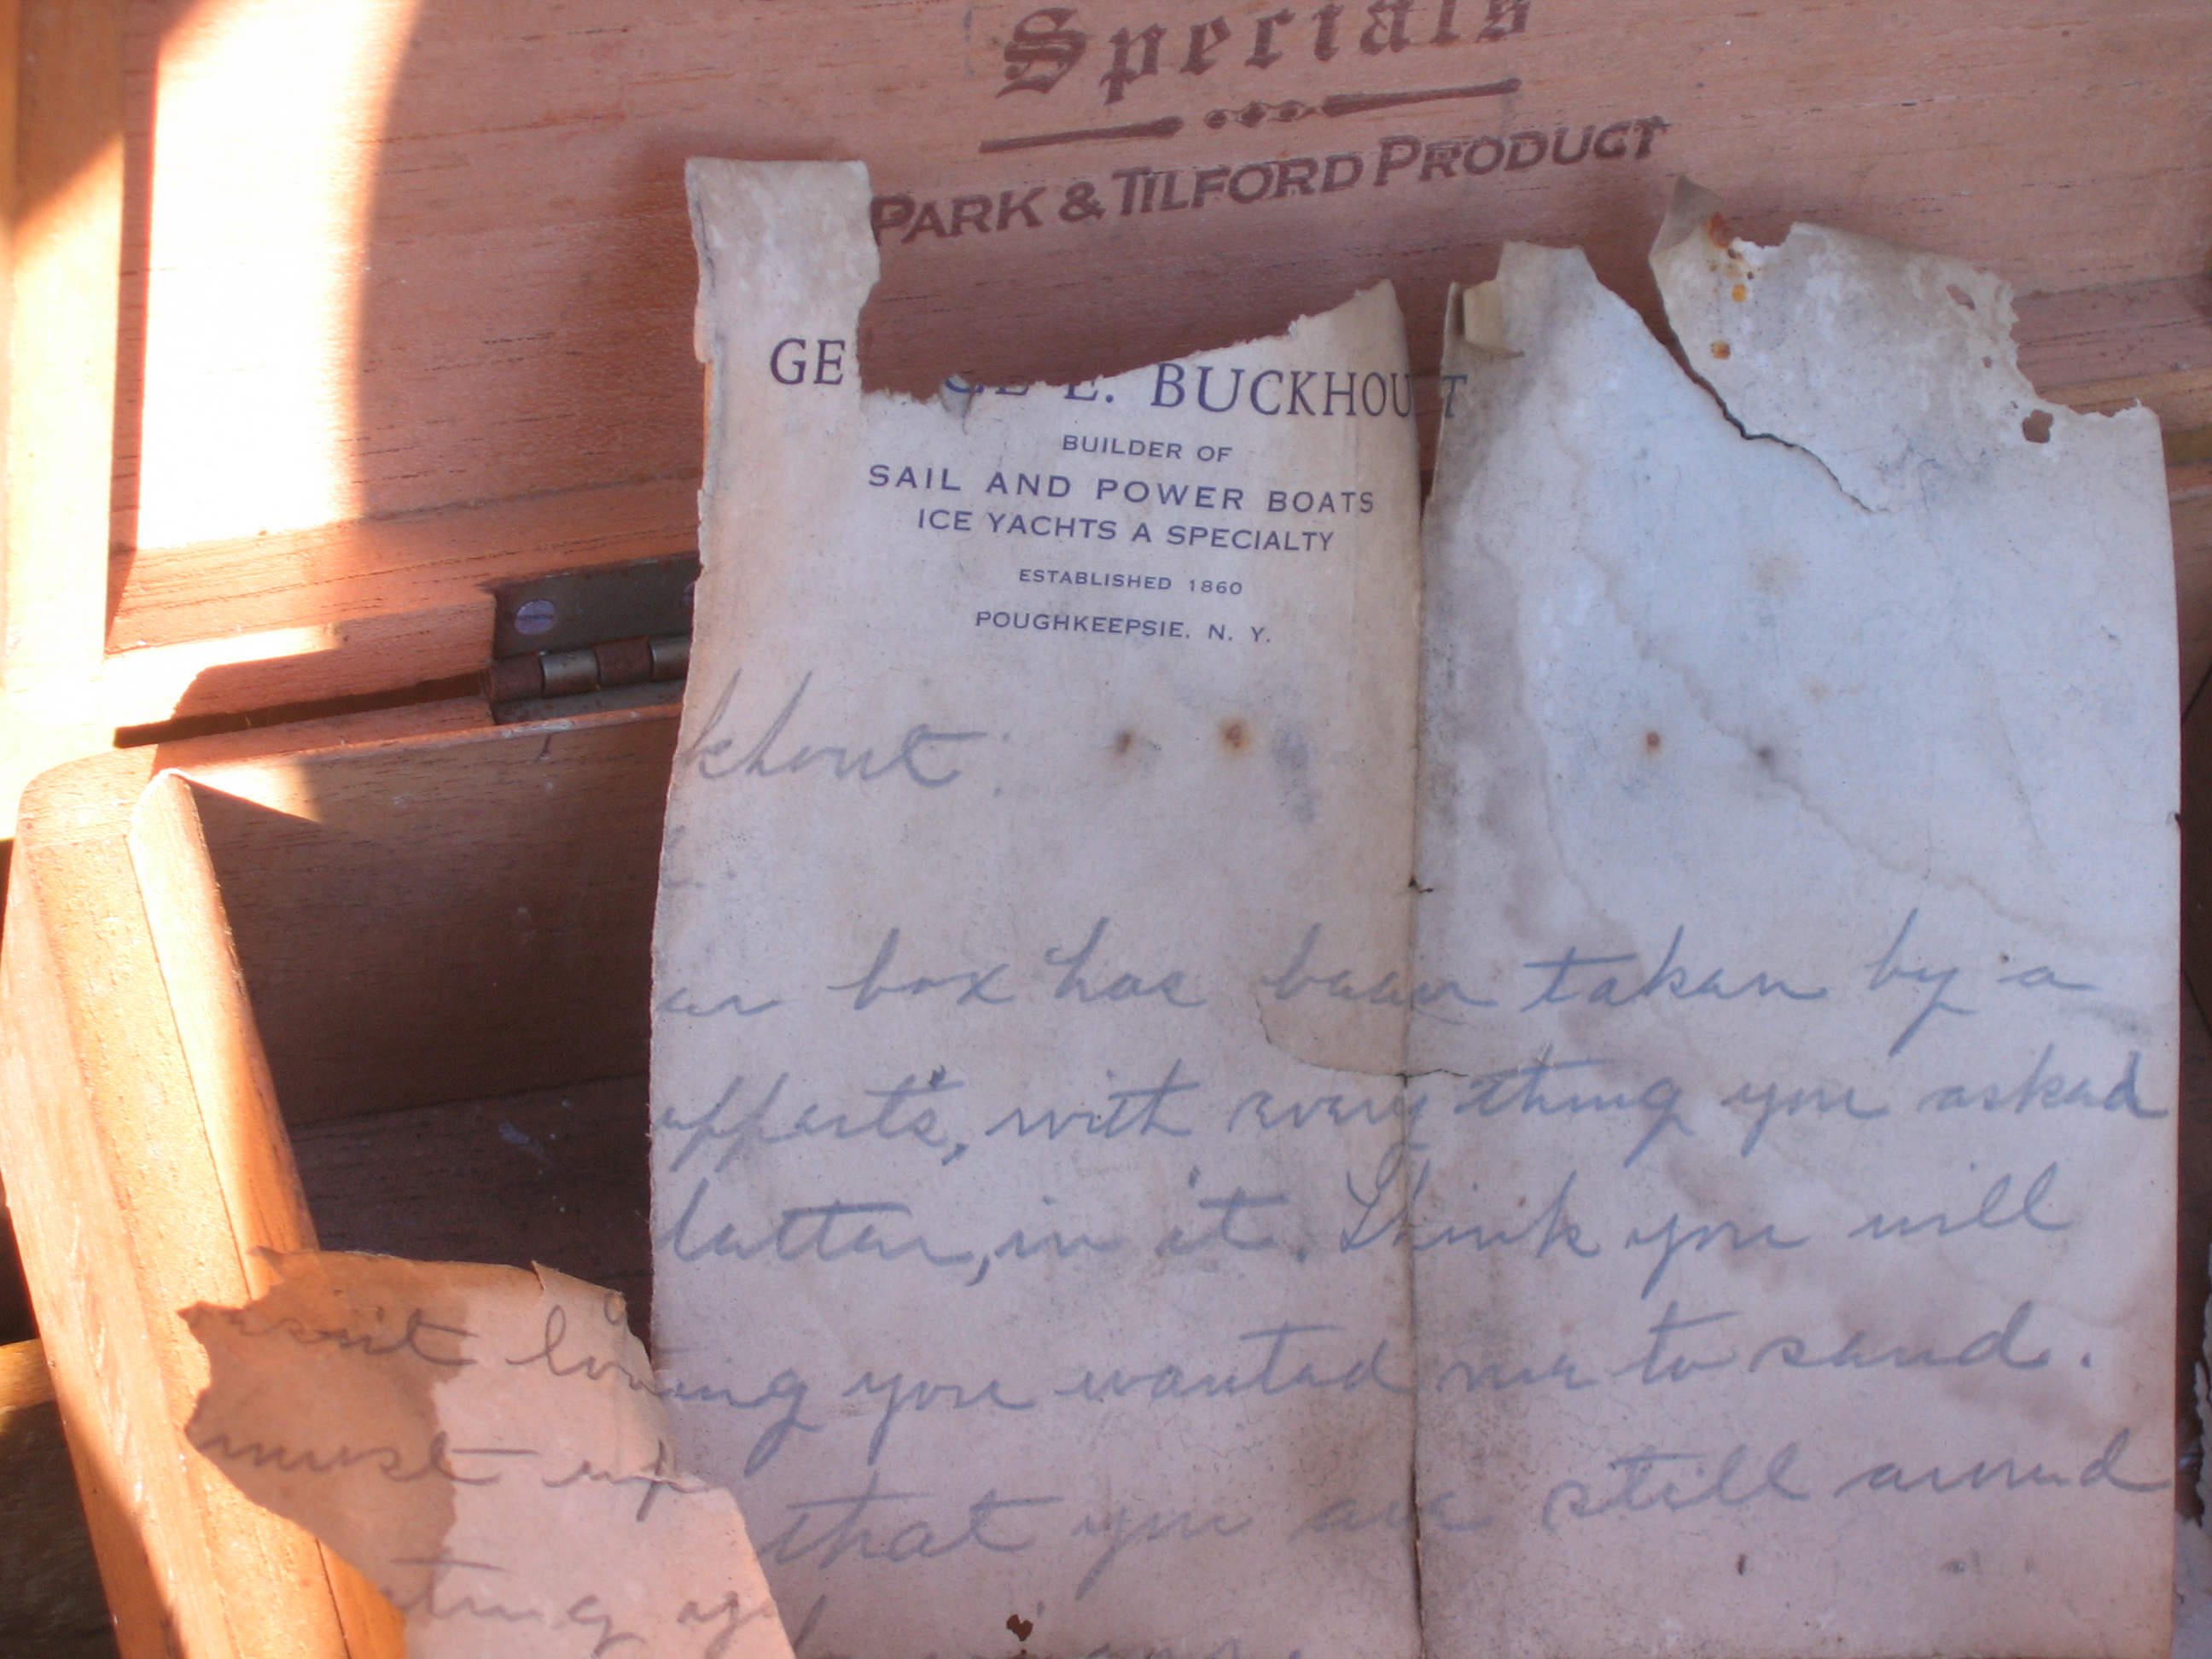 Specials
PARK & TILFORD PRODUCT
GE GE E. BUCKHOUT
BUILDER OF
SAIL AND POWER BOATS
ICE YACHTS A SPECIALTY
ESTABLISHED 1860
POUGHKEEPSIE, N. Y.
khout:
box has been taken by a
with every thing you asked
letter, in it. Think you will
ing you wanted me to send.
must
that you are still around